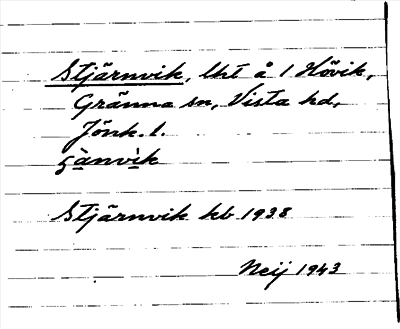 Stjärnvik, lht å 1 Hövik,
Gränna sn, Vista hd,
Jönk. l.
Stjärnvik kb 1938
Neij 1943